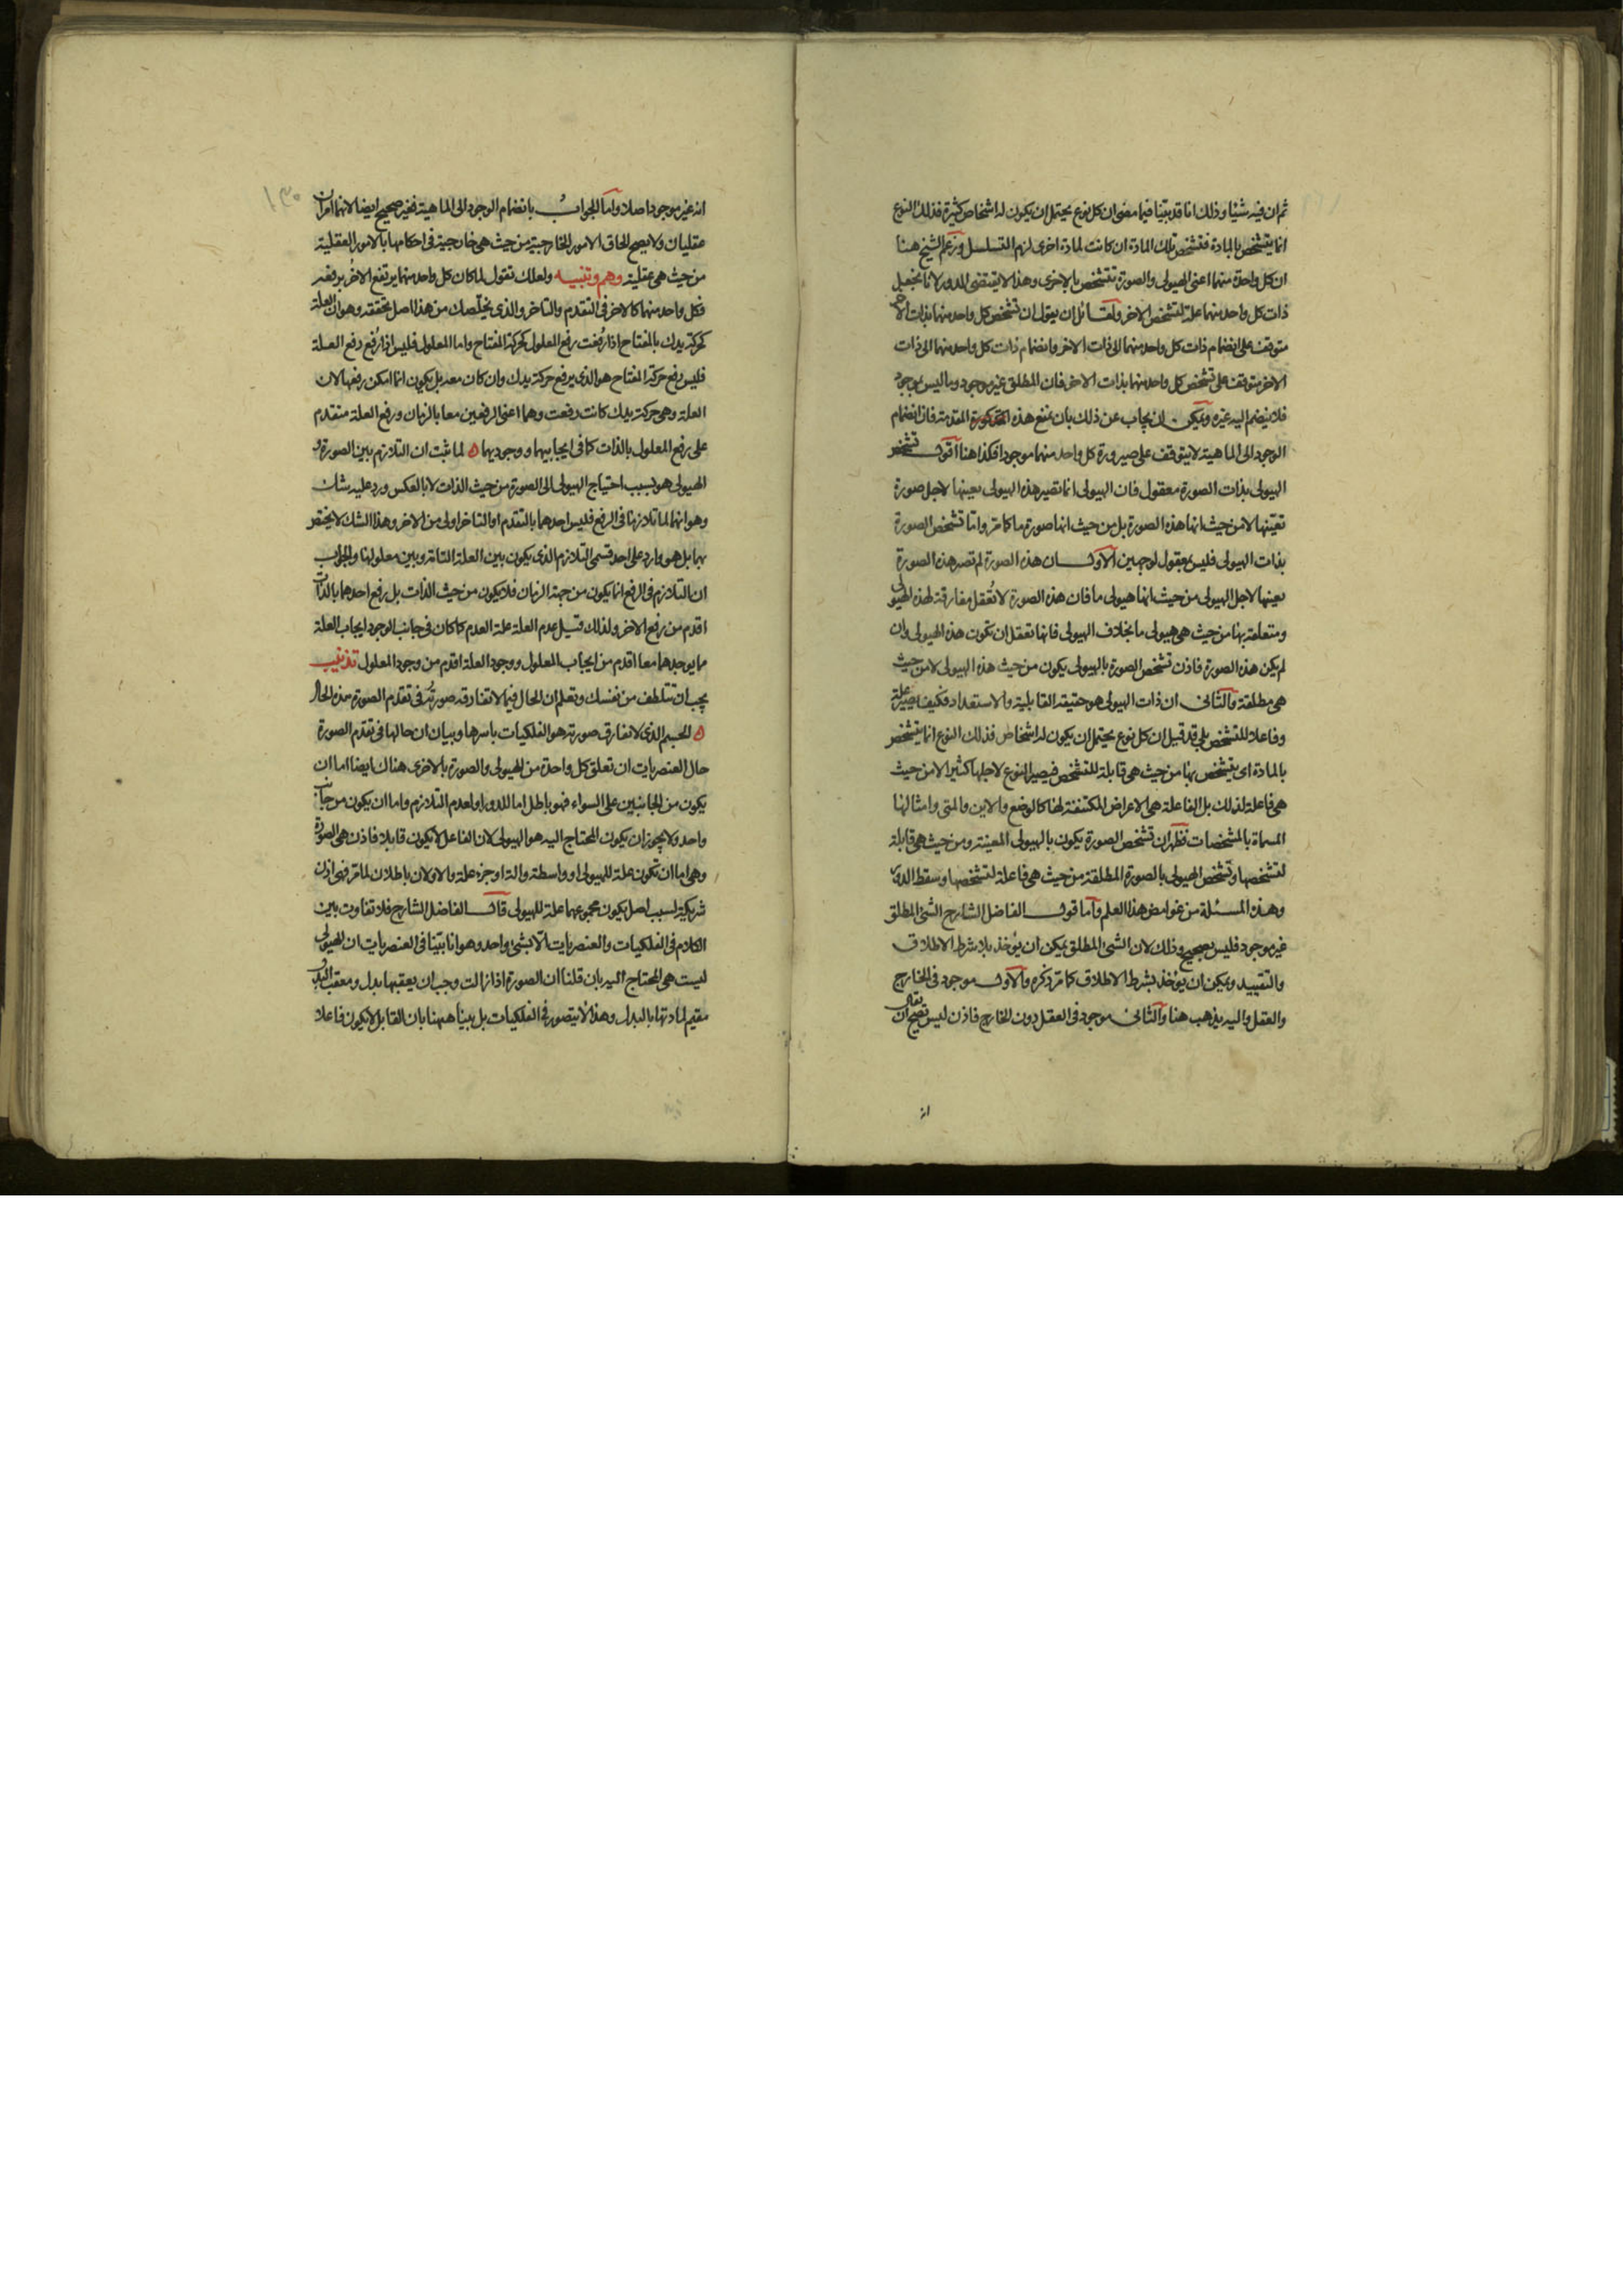 ثم ان فيه شيئا وذلك انا قد بينا فيما مضى ان كل نوع يحتمل ان يكون له اشخاص كثيرة فذلك النوع
انما يتشخص بالمادة فتشخص تلك المادة ان كانت لمادة اخرى لزم التسلسل وزعم الشيخ هنا
ان كل واحدة منهما اعنى الهيولى والصورة تتشخص بالاخرى وهذا لا يقتضى الدور لانا نجعل
ذات كل واحد منهما علة لتشخص الاخر ولقائل ان يقول ان تشخص كل واحد منهما بذات الاخر
متوقف على انضمام ذات كل واحد منهما الى ذات الاخر وانضمام ذات كل واحد منهما الى ذات
الاخر متوقف على تشخص كل واحد منهما بذات الاخر فان المطلق غير موجود وما ليس بموجود
فلا ينضم اليه غيره ويمكن ان يجاب عن ذلك بان يمنع هذه المقدمة فان انضمام
الوجود الى الماهية لا يتوقف على صيرورة كل واحد منهما موجودا فكذا هنا اقول تشخص
الهيولى بذات الصورة معقول فان الهيولى انما تصير هذه الهيولى بعينها لاجل صورة
تعينها لا من حيث انها هذه الصورة بل من حيث انها صورة ما كما مر واما تشخص الصورة
بذات الهيولى فليس بمعقول لوجهين الاول ان هذه الصورة لم تصر هذه الصورة
بعينها لاجل الهيولى من حيث انها هيولى ما فان هذه الصورة لا تعقل مفارقة لهذه الهيولى
ومتعلقة بها من حيث هى هيولى ما بخلاف الهيولى فانها تعقل ان تكون هذه الهيولى وان
لم يكن هذه الصورة فاذن تشخص الصورة بالهيولى يكون من حيث هذه الهيولى لا من حيث
هى مطلقة والثانى ان ذات الهيولى هو حقيقة القابلية والاستعداد فكيف يصير علة
وفاعلا للتشخص بلى قد قيل ان كل نوع يحتمل ان يكون له اشخاص فذلك النوع انما يتشخص
بالمادة اى يتشخص بها من حيث هى قابلة للتشخص فيصير النوع لاجلها كثيرا لا من حيث
هى فاعلة لذلك بل الفاعلة هى الاعراض المكتنفة لها كالوضع والاين والمتى وامثالها
المسماة بالمشخصات فظهر ان تشخص الصورة يكون بالهيولى المعينة ومن حيث هى قابلة
لتشخصها وتشخص الهيولى بالصورة المطلقة من حيث هى فاعلة لتشخصها وسقط الدور
وهذه المسئلة من غوامض هذا العلم واما قول الفاضل الشارح الشئ المطلق
غير موجود فليس بصحيح وذلك لان الشئ المطلق يمكن ان يؤخذ بلا شرط الاطلاق
والتقييد ويمكن ان يؤخذ بشرط الاطلاق كما مر ذكره والاول موجود فى الخارج
والعقل واليه يذهب هنا والثانى موجود فى العقل دون الخارج فاذن ليس يصح ان يقال
انه غير موجود اصلا واما الجواب بانضمام الوجود الى الماهية فغير صحيح ايضا لانهما امران
عقليان ولا يصح الحاق الامور الخارجية من حيث هى خارجية فى احكامها بالامور العقلية
من حيث هى عقلية وهم وتنبيه ولعلك تقول لما كان كل واحد منهما يرتفع الاخر برفعه
فكل واحد منهما كالاخر فى التقدم والتاخر والذى يخلصك من هذا اصل تحققه وهو ان العلة
كحركة يدك بالمفتاح اذا رفعت رفع المعلول كحركة المفتاح واما المعلول فليس اذا رفع رفع العلة
فليس رفع حركة المفتاح هو الذى يرفع حركة يدك وان كان معه بل يكون انما امكن رفعها لان
العلة وهى حركة يدك كانت رفعت وهما اعنى الرفعين معا بالزمان ورفع العلة متقدم
على رفع المعلول بالذات كما فى ايجابيهما ووجوديهما لما ثبت ان التلازم بين الصورة و
الهيولى هو بسبب احتياج الهيولى الى الصورة من حيث الذات لا بالعكس ورد عليه شك
وهو انهما لما تلازما فى الرفع فليس احدهما بالتقدم او التاخر اولى من الاخر وهذا الشك لا يختص
بهما بل هو وارد على احد قسمى التلازم الذى يكون بين العلة التامة وبين معلولها والجواب
ان التلازم فى الرفع انما يكون من جهة الزمان فلا يكون من حيث الذات بل رفع احدهما بالذات
اقدم من رفع الاخر ولذلك قيل عدم العلة علة العدم كما كان فى جانب الوجود ايجاب العلة
ما يوجدهما معا اقدم من ايجاب المعلول ووجود العلة اقدم من وجود المعلول تذنيب
يجب ان تتلطف من نفسك وتعلم ان الحال فيما لا تفارقه صورته فى تقدم الصورة هذه الحال
الجسم الذى لا تفارق صورته هو الفلكيات باسرها وبيان ان حالها فى تقدم الصورة
حال العنصريات ان تعلق كل واحدة من الهيولى والصورة بالاخرى هناك ايضا اما ان
يكون من الجانبين على السواء فهو باطل اما للدور او لعدم التلازم واما ان يكون من جانب
واحد ولا يجوز ان يكون المحتاج اليه هو الهيولى لان الفاعل لا يكون قابلا فاذن هى الصورة
وهى اما ان تكون علة للهيولى او واسطة والة او جزء علة والاولان باطلان لما مر فهى اذن
شريكة لسبب اصل يكون مجموعهما علة للهيولى قال الفاضل الشارح فلا تفاوت بين
الكلام فى الفلكيات والعنصريات الا بشئ واحد وهو انا بينا فى العنصريات ان الهيولى
ليست هى المحتاج اليه بان قلنا ان الصورة اذا زالت وجب ان يعقبها بدل ومعقب البدل
مقيم لمادتها بالبدل وهذا لا يتصور فى الفلكيات بل بينا ههنا بان القابل لا يكون فاعلا
انه
١٣٠